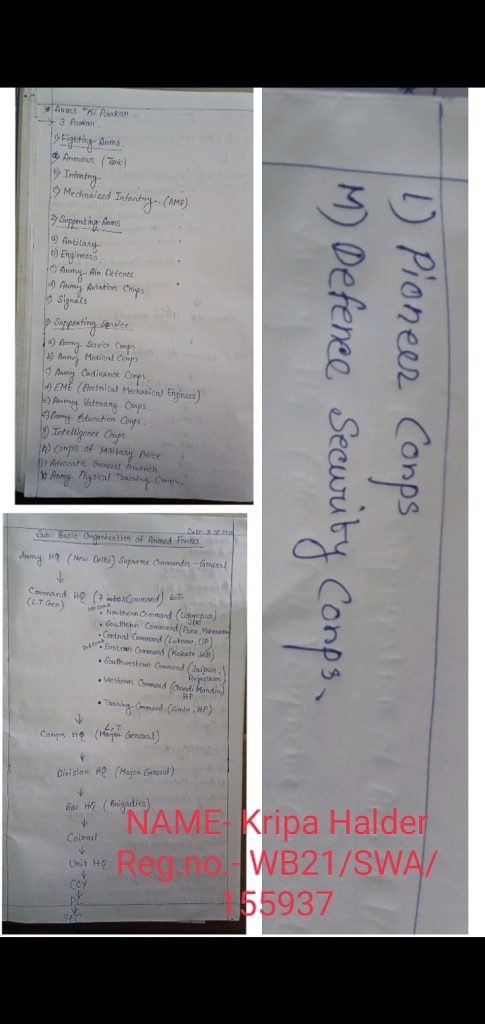 * Arms "Ki Prakar.
→ 3 Prakar.
1) Fighting Arms
a) Armour (Tank)
b) Infantry
c) Mechnaized Infantry- (BMP)
2) Supporting Arms
a) Artilary
b) Engineers
c) Army Air Defence
d) Army Aviation Corps.
e) Signals
3) Supporting Service
a) Army Service Corps
b) Army Medical Corps
c) Army Ordinance Corps
d) EME (Electrical Mechanical Engineer)
e) Army Vatenary Corps
f) Army Education Corps.
g) Intelligence Corps.
h) Corps of Military Police
Advocate General Branch
k) Army Physical Training Corps.
L) Pioneer Corps
M) Defence Security Corps.
Date-
Sub: Basic Organization of Armed Forces
Army HQ (New Delhi) Supreme Commander - General
↓
Command HQ (7 Command)
(L.T. Gen)
• Northern Command (Udampur,
J&K
• Southern Command (Pune, Maharashtra)
• Central Command (Luknow, UP)
• Eastern Command (Kolkata, WB)
• Southwestern Command (Jaipur,
Rajasthan)
• Western Command (Chandi Mandir)
HP
• Training Command (Simla, HP)
↓
L.T
Corps HQ (Major General)
↓
Division HQ (Major General)
↓
Bde HQ (Brigadies)
↓
Colonel
↓
Unit HQ
↓
COY
↓
PL
↓
SEC
NAME- Kripa Halder
Reg.no.- WB21/SWA/
155937